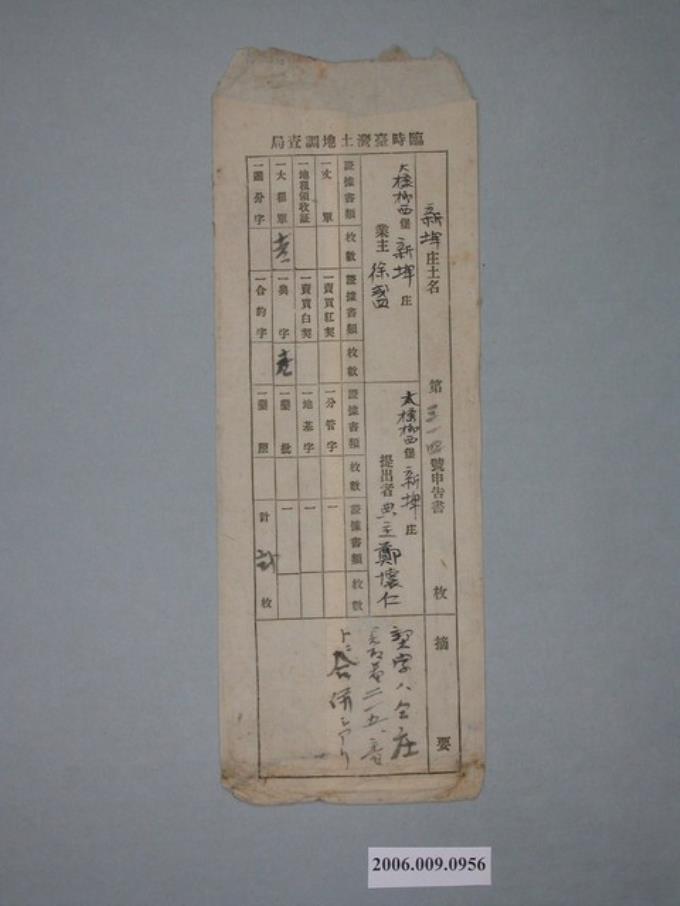 臨時臺灣土地調查局
新埤庄土名
第三一四號申告書
枚
大槺榔西堡新埤庄
業主
徐
大槺榔西堡新埤庄
提出者
典主鄭懷仁
證據書類
枚數
證據書類
枚數
證據書類
枚數
證據書類
枚數
一丈單
一賣買紅契
一分管字
一
一地租領收証
一賣買白契
一地基字
一
一大租單
壹
一典字
壹
一墾批
一
一鬮分字
一合約字
一墾照
計
貳
枚
摘要
契字ハ仝庄
二一五
合併シアリ
2006.009.0956